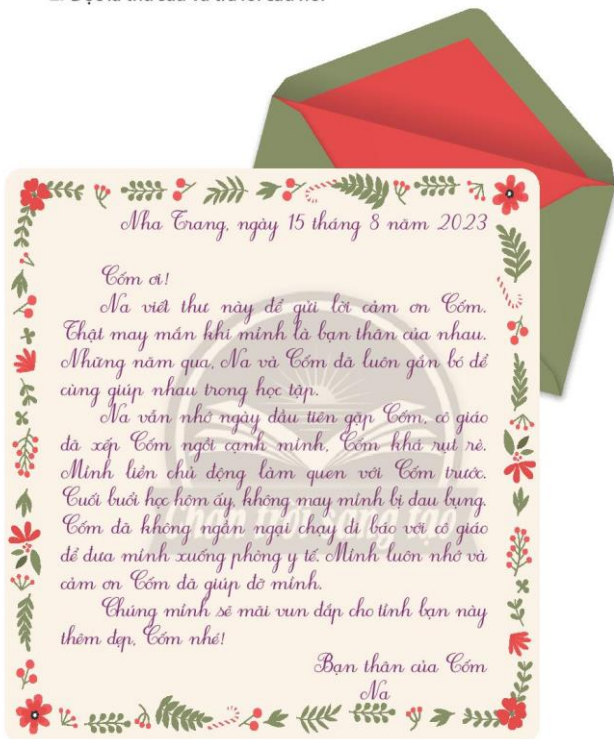 Nha Trang, ngày 15 tháng 8 năm 2023
Cốm ơi!
Na viết thư này để gửi lời cảm ơn Cốm.
Thật may mắn khi mình là bạn thân của nhau.
Những năm qua, Na và Cốm đã luôn gắn bó để
cùng giúp nhau trong học tập.
Na vẫn nhớ ngày đầu tiên gặp Cốm, cô giáo
đã xếp Cốm ngồi cạnh mình, Cốm khá rụt rè.
Mình liền chủ động làm quen với Cốm trước.
Cuối buổi học hôm ấy, không may mình bị đau bụng.
Cốm đã không ngần ngại chạy đi báo với cô giáo
để đưa mình xuống phòng y tế. Mình luôn nhớ và
cảm ơn Cốm đã giúp đỡ mình.
Chúng mình sẽ mãi vun đắp cho tình bạn này
thêm đẹp, Cốm nhé!
Bạn thân của Cốm
Na
Chân trời sáng tạo